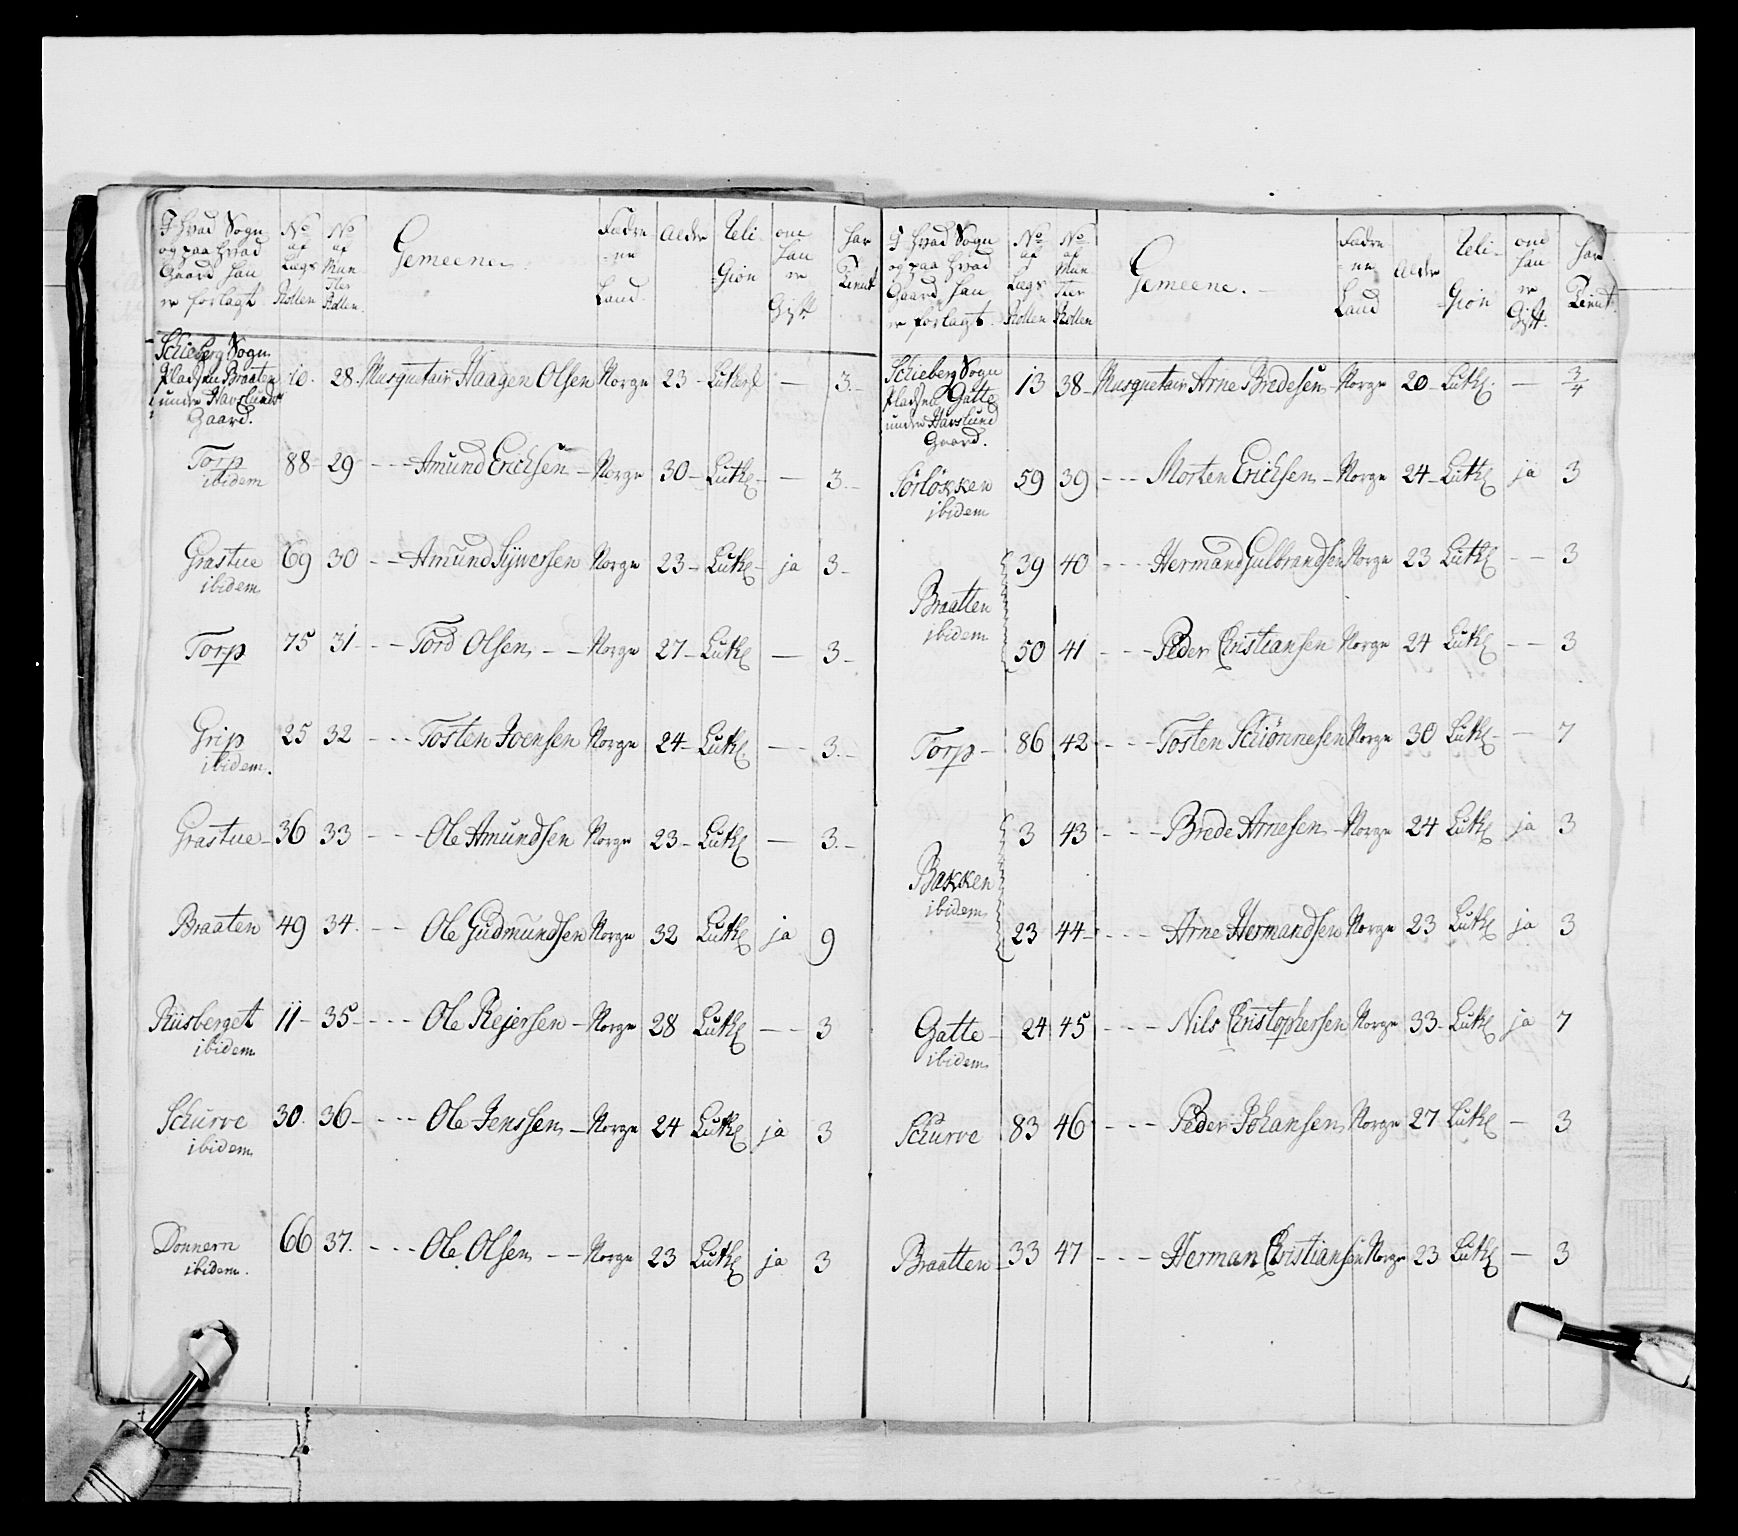 I hvad Sogn og paa hvad Gaard han er forlagt. | No af Lægs Rollen | No af Mun ster Rollen. | Gemeene. | Fædre -ne Land. | Alder | Reli -Gion | om han er Gift | har tient
Schieberg Sogn Pladsen Braaten under Havslunds Gaard. | 10. | 28. | Musquetair Haagen Olsen | Norge | 23 | Luthersk | — | 3.
Torp ibidem | 88 | 29 | --- Amund Erichsen | Norge | 30 | Luth | — | 3.
Grastue ibidem | 69 | 30 | --- Amund Syversen | Norge | 23 | Luth | ja | 3
Torp | 75 | 31 | --- Tord Olsen | Norge | 27 | Luth | — | 3
Grip ibidem. | 25 | 32 | --- Tosten Joensen | Norge | 24 | Luth | — | 3.
Grastue | 36 | 33 | --- Ole Amundsen | Norge | 23 | Luth | — | 3.
Braaten | 49 | 34. | --- Ole Gudmundsen | Norge | 32 | Luth | ja | 9
Riisberget ibidem | 11 | 35 | --- Ole Rejersen | Norge | 28 | Luth | — | 3
Schurve ibidem | 30. | 36 | --- Ole Jenssen | Norge | 24 | Luth | ja | 3
Donnern ibidem. | 66 | 37. | --- Ole Olsen | Norge | 23 | Luth | ja | 3
I hvad Sogn og paa hvad Gaard han er forlagt. | No af Lægs Rollen | No af Mun ster Rollen | Gemeene. | Fædre -ne Land | Alder | Reli -Gion | om han er Gift. | har tient.
Schieberg Sogn Pladsen Gatte under Havslund Gaard. | 13 | 38 | Musquetair Arne Bredesen | Norge | 20 | Luth | — | 3/4
Sørløkken ibidem | 59 | 39 | --- Morten Erichsen | Norge | 24 | Luth | ja | 3
Braatten ibidem | 39 | 40 | --- Hermand Gulbrandsen | Norge | 23 | Luth | — | 3
50 | 41 | --- Peder Christiansen | Norge | 24 | Luth | — | 3
Torp | 86 | 42 | --- Tosten Schiønnesen | Norge | 30 | Luth | — | 7
Bakken ibidem | 3 | 43 | --- Brede Arnesen | Norge | 24 | Luth | ja | 3
23 | 44 | --- Arne Hermandsen | Norge | 23 | Luth | ja | 3
Gatte ibidem | 24 | 45 | --- Nils Christophersen | Norge | 33 | Luth | ja | 7
Schurve | 83 | 46 | --- Peder Johansen | Norge | 27 | Luth | — | 3
Braatten | 33 | 47 | --- Herman Christiansen | Norge | 23 | Luth | — | 3